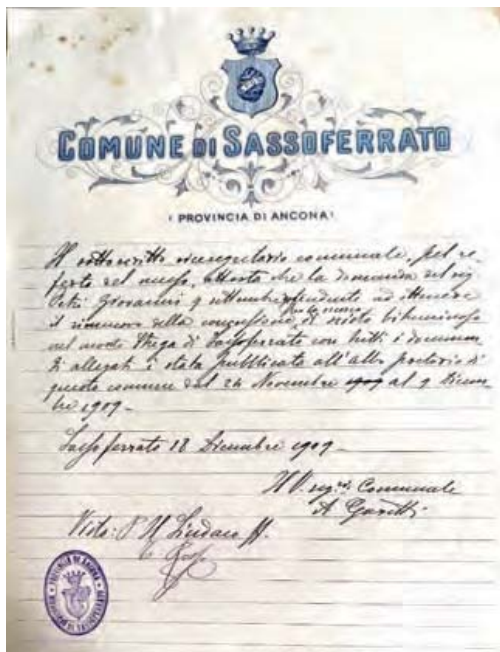 COMUNE DI SASSOFERRATO
PROVINCIA DI ANCONA
Il sottoscritto vicesegretario comunale, pel re-
ferto del messo, attesta che la domanda del sig.
Petri Giovanni 9 settembre tendente ad ottenere
il rinnovo della concessione di scisto bituminoso
nel monte Strega di Sassoferrato con tutti i documen-
ti allegati è stata pubblicata all'albo pretorio di
questo comune dal 24 Novembre 1909 al 9 Dicem-
bre 1909-
Sassoferrato 18 Dicembre 1909-
Il V. seg.rio Comunale
A
Visto: Il Sindaco ff.
PROVINCIA DI ANCONA